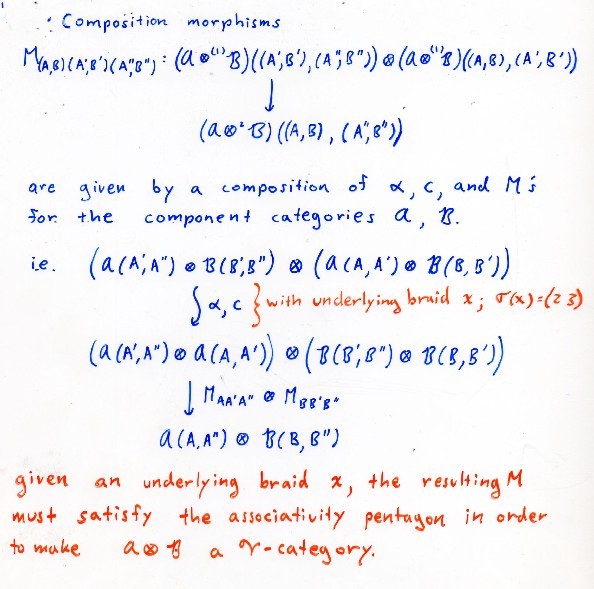 · Composition morphisms
M_{(A,B)(A',B')(A'',B'')} : (𝒜⊗^{(1)}ℬ)((A',B'),(A'',B''))⊗(𝒜⊗^{(1)}ℬ)((A,B),(A',B'))
↓
(𝒜⊗²ℬ)((A,B),(A'',B''))
are given by a composition of α, c, and M's
for the component categories 𝒜, ℬ.
i.e. (𝒜(A',A'')⊗ℬ(B',B'')⊗(𝒜(A,A')⊗ℬ(B,B'))
α, c } with underlying braid x; σ(x)=(2 3)
(𝒜(A',A'')⊗𝒜(A,A'))⊗(ℬ(B',B'')⊗ℬ(B,B'))
↓ M_{AA'A''} ⊗ M_{BB'B''}
𝒜(A,A'')⊗ℬ(B,B'')
given an underlying braid x, the resulting M
must satisfy the associativity pentagon in order
to make 𝒜⊗ℬ a 𝒱-category.